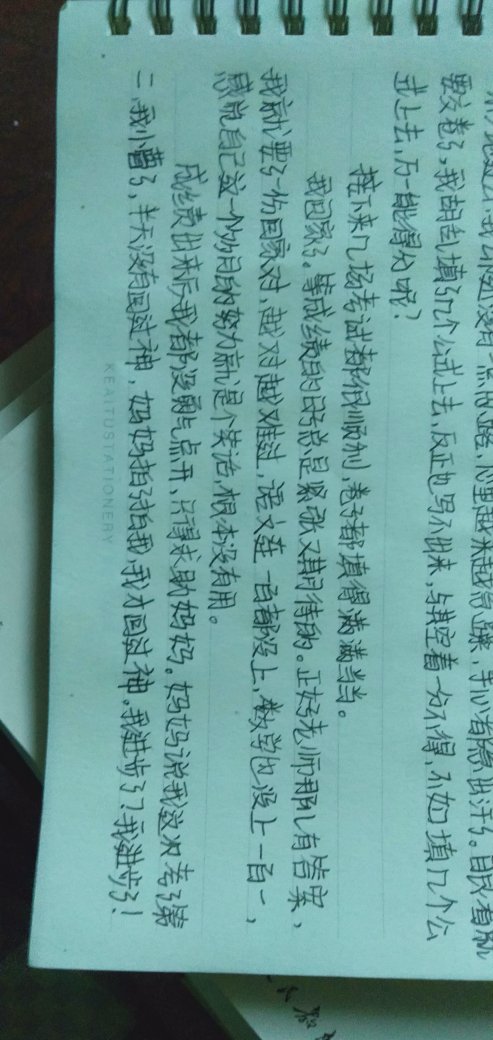 要交卷了,我胡乱填了几个公式上去,反正也写不出来,与其空着一分不得,不如填几个公
式上去,万一能得分呢?
接下来几场考试都很顺利,卷子都填得满满当当。
我回家了。等成绩的日子总是紧张又期待的。正好老师那儿有答案,
我就要了一份回家对,越对越难过,语文连一百都没上,数学也没上一百一,
感觉自己这一个多月的努力就是个笑话,根本没有用。
成绩出来后我都没勇气点开,只得求助妈妈。妈妈说我这次考了第
二,我小懵了,半天没有回过神,妈妈拍了拍我,我才回过神。我进步了?我进步了!
KEAITUSTATIONERY